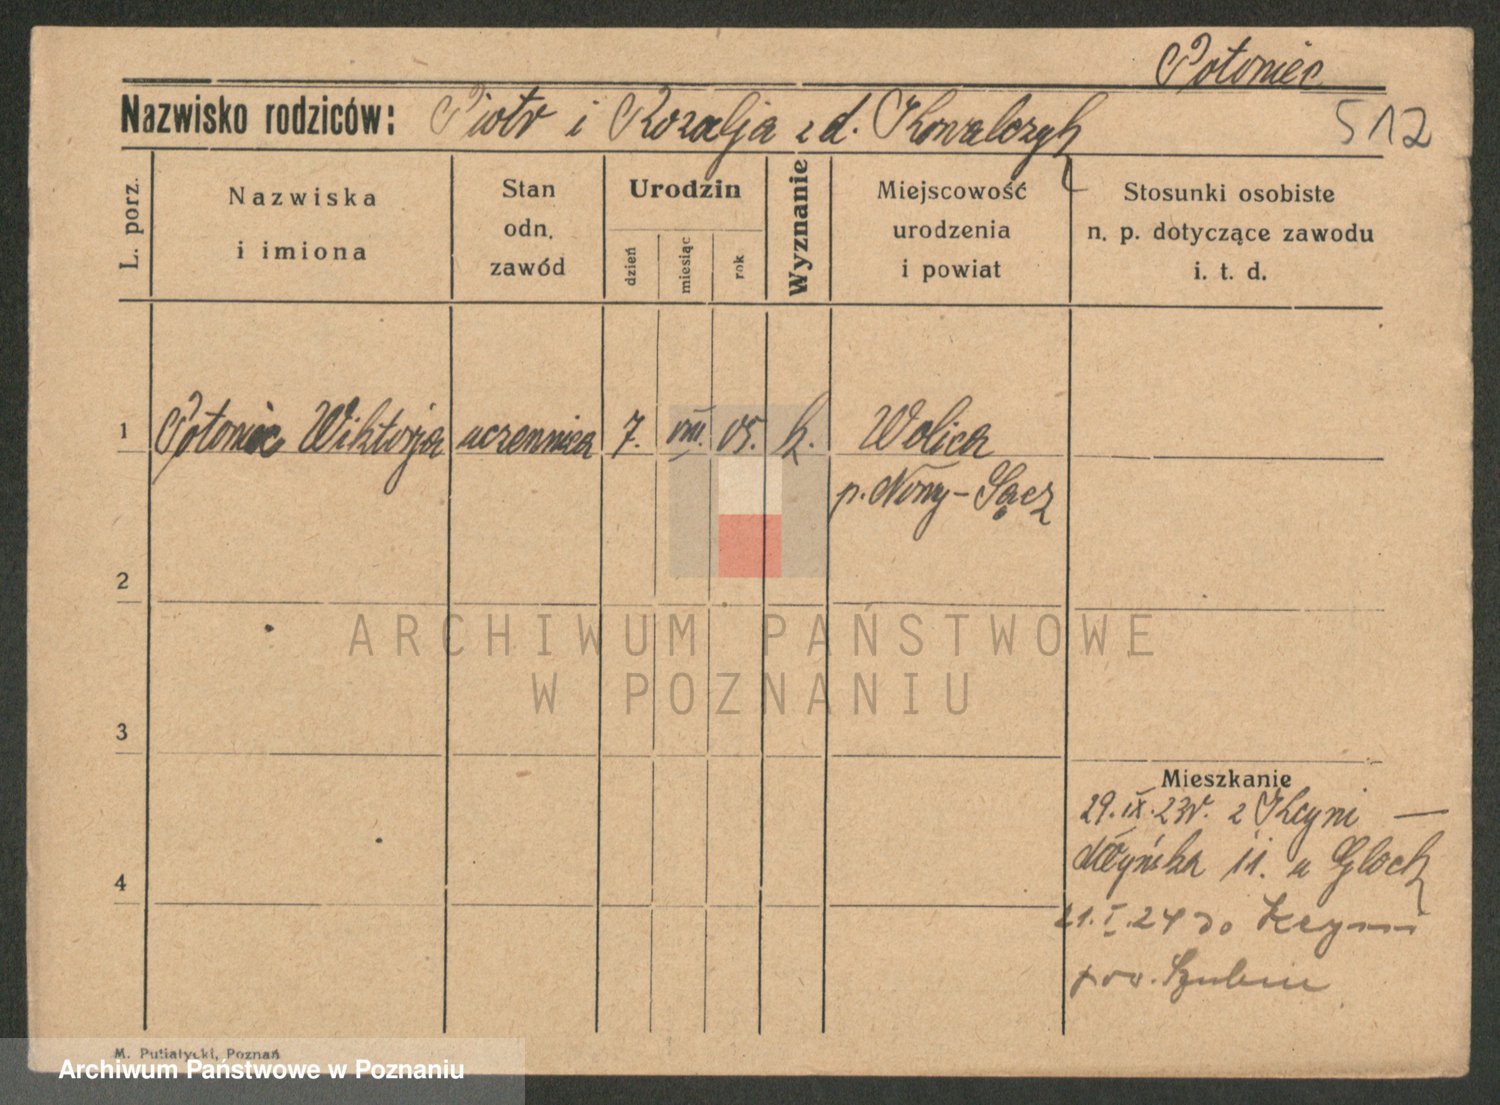 Potoniec
Nazwisko rodziców: Piotr i Rozalja z d. Kowalczyk
512
L. porz.
Nazwiska
i imiona
Stan
odn.
zawód
Urodzin
dzień
miesiąc
rok
Wyznanie
Miejscowość
urodzenia
i powiat
Stosunki osobiste
n. p. dotyczące zawodu
i. t. d.
1 Potoniec Wiktorja uczennica 7. VIII. 05. k. Wolica
p. Nowy-Sącz
2
ARCHIWUM PAŃSTWOWE
W POZNANIU
3
Mieszkanie
29.IX.23r. z Kcyni —
Młyńska 11. u Glock
4
21.I.24 do Kcyni
pow. Szubin
M. Putiatycki, Poznań
Archiwum Państwowe w Poznaniu